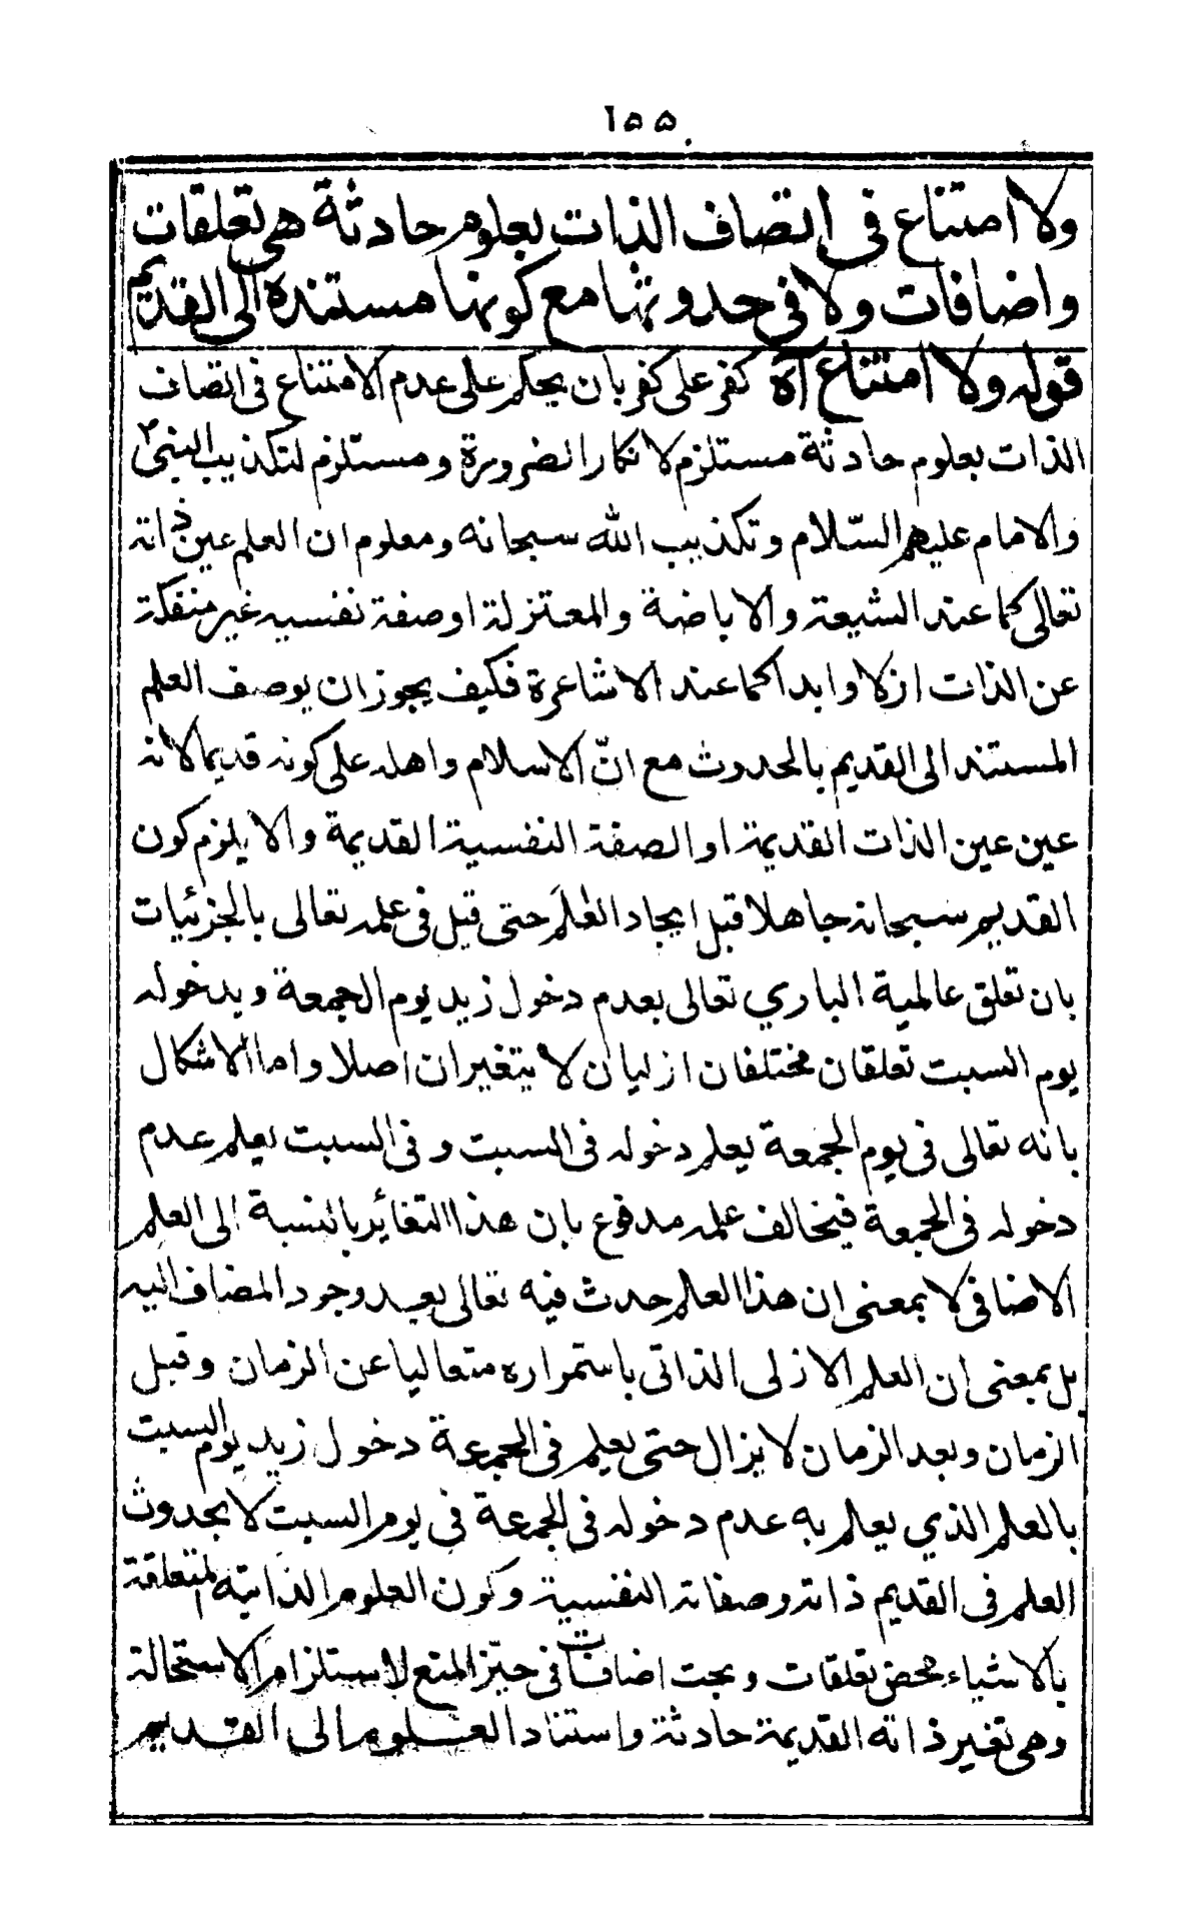 ١٥٥
ولا امتناع فى اتصاف الذات بعلوم حادثة هى تعلقات
واضافات ولا فى حدوثها مع كونها مستندة الى القديم
قوله ولا امتناع آه كفر على كفر بان يحكم على عدم الامتناع فى اتصاف
الذات بعلوم حادثة مستلزم لانكار الضرورة ومستلزم لتكذيب النبى
والامام عليهم السّلام وتكذيب الله سبحانه ومعلوم ان العلم عين ذاته
تعالى كما عند الشيعة والاباضة والمعتزلة اوصفة نفسيه غير منفكة
عن الذات ازلا وابدا كما عند الاشاعرة فكيف يجوز ان يوصف العلم
المستند الى القديم بالحدوث مع انّ الاسلام واهله على كونه قديما لانه
عين عين الذات القديمة او الصفة النفسية القديمة والا يلزم كون
القديم سبحانه جاهلا قبل ايجاد العالم حتى قيل فى علمه تعالى بالجزئيات
بان تعلق عالمية الباري تعالى بعدم دخول زيد يوم الجمعة وبدخوله
يوم السبت تعلقان مختلفان ازليان لا يتغيران اصلا واما الاشكال
بانه تعالى فى يوم الجمعة يعلم دخوله فى السبت وفى السبت يعلم عدم
دخوله فى الجمعة فيخالف علمه مدفوع بان هذا التغائر بالنسبة الى العلم
الاضافى لا بمعنى ان هذا العلم حدث فيه تعالى بعد وجود المضاف اليه
بل بمعنى ان العلم الازلى الذاتى باستمراره متعاليا عن الزمان وقبل
الزمان وبعد الزمان لا يزال حتى يعلم فى الجمعة دخول زيد يوم السبت
بالعلم الذي يعلم به عدم دخوله فى الجمعة فى يوم السبت لا بحدوث
العلم فى القديم ذاته وصفاته النفسية وكون العلوم الذاتيه المتعلقة
بالاشياء محض تعلقات وبحت اضافات فى حيّز المنع لاستلزام الاستحالة
وهى تغير ذاته القديمة حادثة واستناد العلوم الى القديم